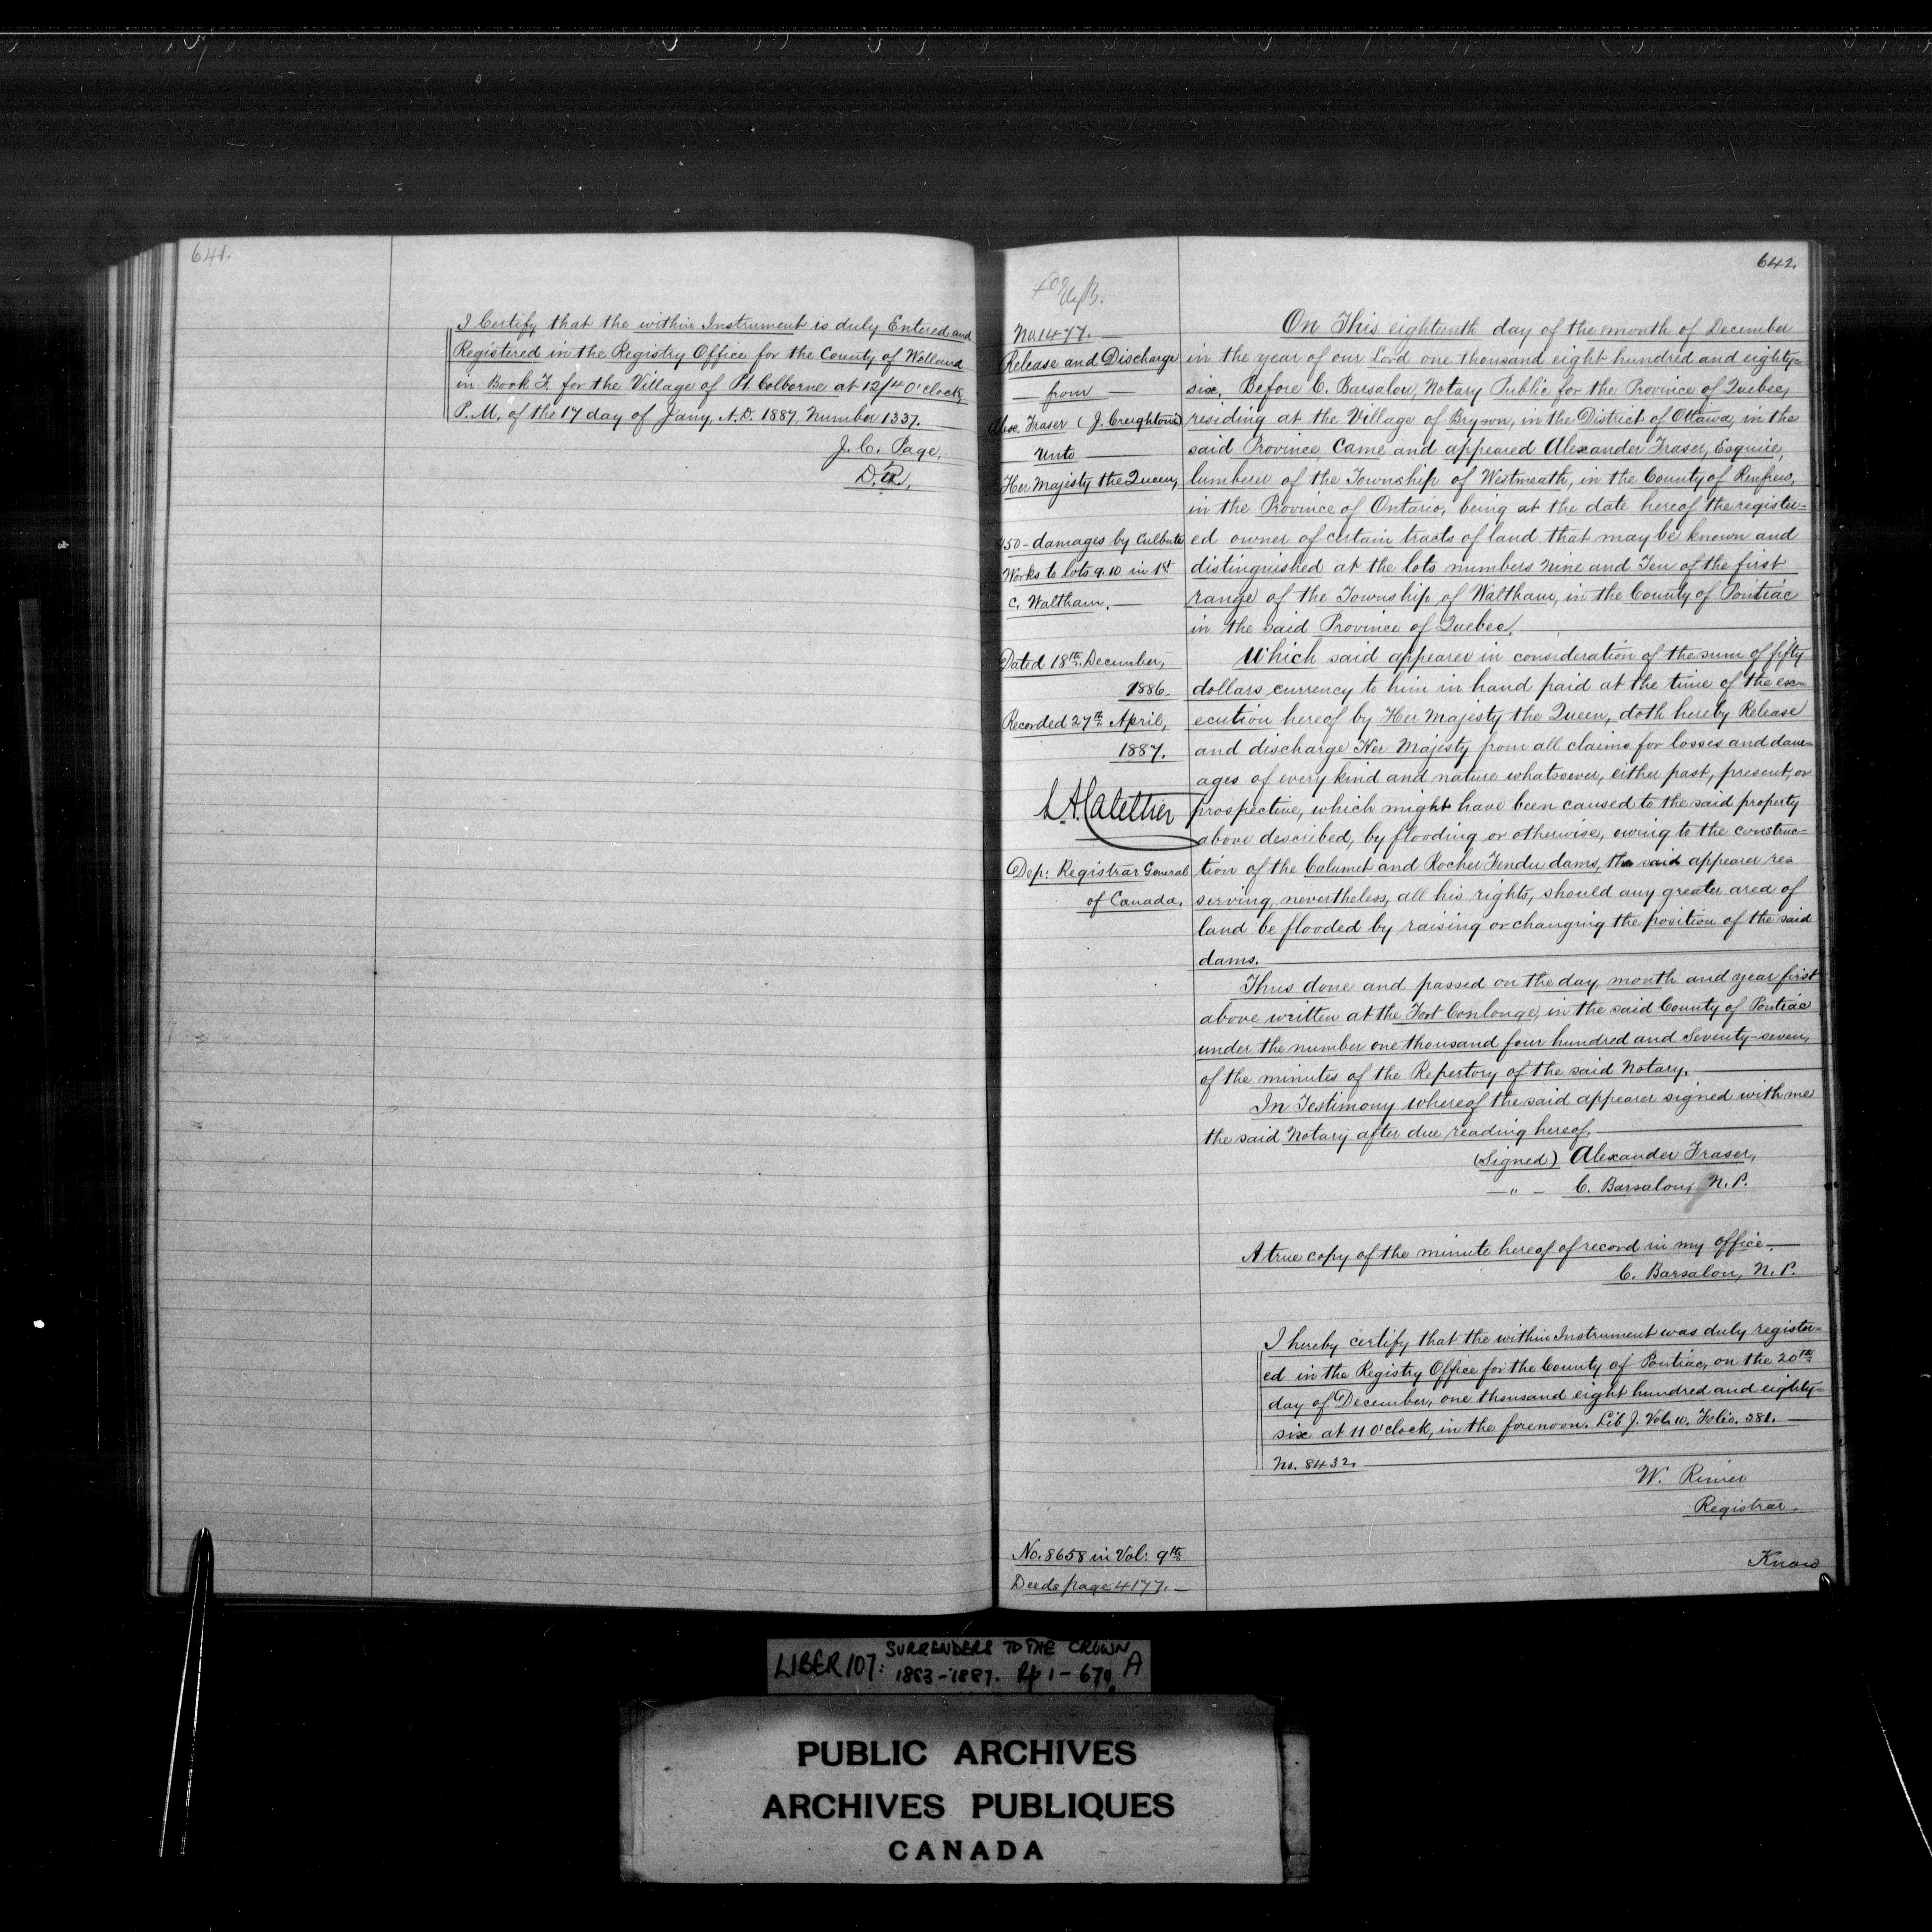 641.
I Certify that the within Instrument is duly Entered and
Registered in the Registry Office for the County of Welland
in Book F. for the Village of Pt. Colborne at 12/40 'clock,
P.M. of the 17 day of Jany, A.D. 1887. Number 1337.
J. C. Page,
D.R.
642.
No. 1477.
Release and Discharge
— from —
Alex. Fraser (J. Creighton's)
— Unto —
Her Majesty the Queen,
$50 - damages by Culbute
Works to lots 9.10 in 1st
C. Waltham. —
Dated 18th December,
1886.
Recorded 27th April,
1887.
Dep: Registrar General
of Canada.
On This eighteenth day of the month of December
in the year of our Lord one thousand eight hundred and eighty=
six, Before C. Barsalou, Notary Public for the Province of Quebec,
residing at the Village of Bryson, in the District of Ottawa, in the
said Province, Came and appeared Alexander Fraser, Esquire,
lumberer of the Township of Westmeath, in the County of Renfrew,
in the Province of Ontario, being at the date hereof the register=
ed owner of certain tracts of land that may be known and
distinguished at the lots numbers Nine and Ten of the first
range of the Township of Waltham, in the County of Pontiac
in the said Province of Quebec.
Which said appearer in consideration of the sum of fifty
dollars currency to him in hand paid at the time of the ex=
ecution hereof by Her Majesty the Queen, doth hereby Release
and discharge Her Majesty from all claims for losses and dam=
ages of every kind and nature whatsoever, either past, present, or
prospective, which might have been caused to the said property
above described, by flooding or otherwise, owing to the construc=
tion of the Calumet and Rocher Fendu dams, the said appearer re=
serving, nevertheless, all his rights, should any greater area of
land be flooded by raising or changing the position of the said
dams.
Thus done and passed on the day, month and year first
above written at the Fort Coulonge, in the said County of Pontiac
under the number one thousand four hundred and Seventy-seven,
of the minutes of the Repertory of the said Notary.
In Testimony whereof the said appearer signed with me
the said Notary after due reading hereof.
(Signed) Alexander Fraser,
— " — C. Barsalou, N.P.
A true copy of the minute hereof of record in my office.
C. Barsalou, N.P.
I hereby certify that the within Instrument was duly register=
ed in the Registry Office for the County of Pontiac, on the 20th
day of December, one thousand eight hundred and eighty=
six at 11 O'clock, in the forenoon. Lib J. Vol. 10. Folio. 381. —
No. 8432.
W. Rimer
Registrar.
No. 8658 in Vol: 9th
Deeds page 4177. —
Know
LIBER 107: SURRENDERS TO THE CROWN A
1883-1887. Pp 1-670.
PUBLIC ARCHIVES
ARCHIVES PUBLIQUES
CANADA